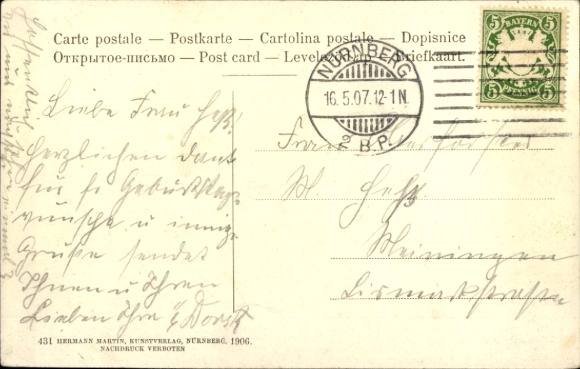 Carte postale — Postkarte — Cartolina postale — Dopisnice
Открытое-письмо — Post card — Levelező-lap — Briefkaart.
NÜRNBERG
16.5.07.12-1N
2 B.P.
5 BAYERN 5
5 PFENNIG 5
Liebe Frau Heß!
Herzlichen Dank
für Geburtstags
wünsche u innige
Grüße sendet
Ihnen u Ihren
Lieben Ihre Dorst
Frau
M Heß
Meiningen
Bismarkstraße
431 HERMANN MARTIN, KUNSTVERLAG, NÜRNBERG, 1906.
NACHDRUCK VERBOTEN